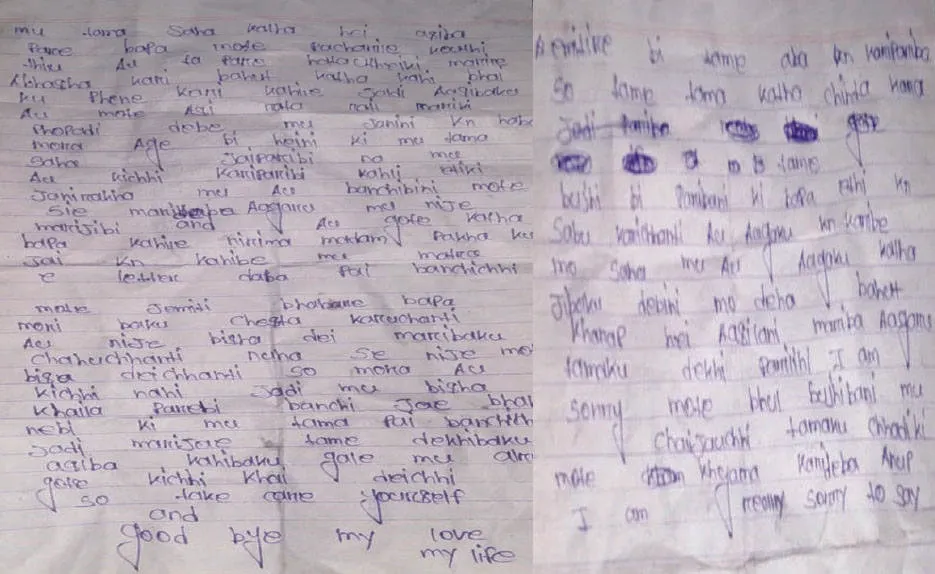 mu tama saha katha hei asiba
pare bapa mote
thiu Au ta pare
katha kahi bhai
ku Phone kari kahile Jadi Aasibaku
Au mote Asi nala nali mariki
Phopadi debe mu Janini kn haba
mora Age bi heini ki mu tama
saha Jaiparibi na mu
Au kichhi Kariparibi kahi etiki
Janirakha mu Au banchibini mote
Sie Aagaru mu nije
marijibi and Au gote katha
bapa kahile nirima madam pakha ku
Jai kn kahibe mu
e letter daba pai banchichhi
mote Jemiti bhabare bapa
moni baku chesta karuchanti
Au nije bisha dei maribaku
chahuchhanti neha se nije mo
bisa deichhanti so mora Au
kichhi nahi Jadi mu bisha
khaila parebi banchi Jae bhal
nebi ki mu tama pai banchith
Jadi marijae tame dekhibaku
asiba kahibaku gale mu
gote kichhi khai deichhi
so take care yourself
and
good bye my love
my life
bi tame aba kn karipariba
So tame tama katha chinta kara
Jadi gote
tame
bujhi bi paribani ki bapa ethi kn
Sabu karichhanti Au Aagaku kn karibe
mo saha mu Au Aagaku katha
Jibaku debini mo deha bahett
kharap hei Aasilani mariba Aagaru
tamaku dekhi parilhi I am
sorry mote bhul bujhibani mu
chalijauchhi tamaku chhadiki
mote khyama karideba Arup
I am really sorry to say